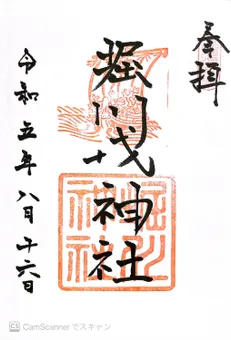 奉拝
堀川戎神社
堀川
神社
令和五年八月十六日
CS CamScanner でスキャン